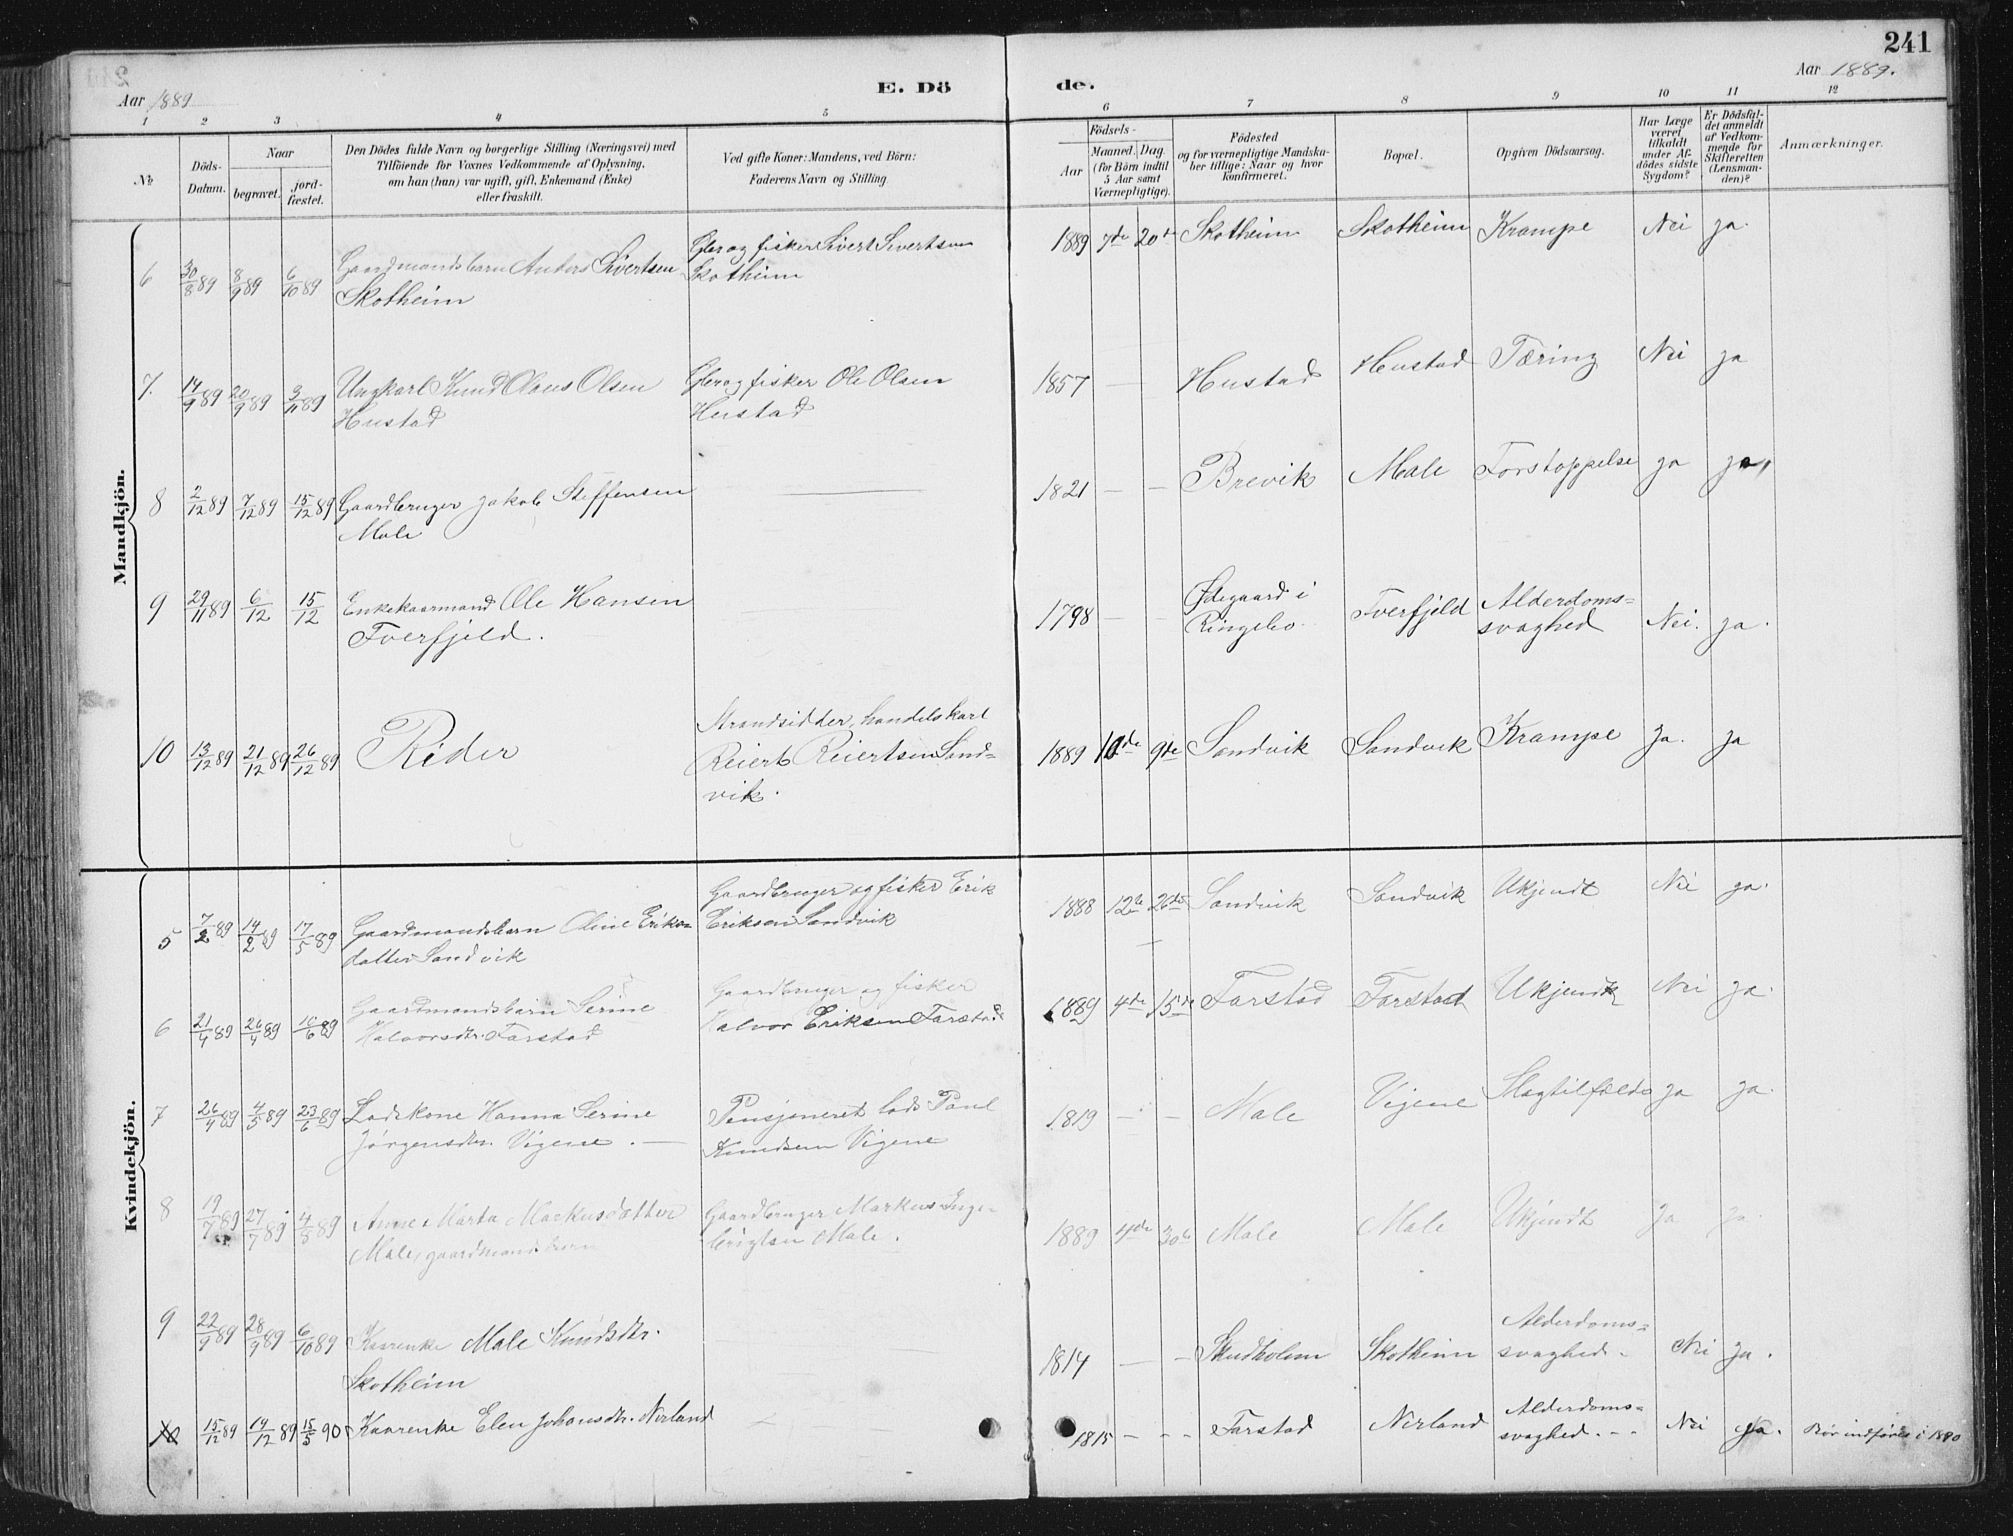 241
Aar 1889
E. Dö
de.
Aar 1889.
1 2 3 4 5 6 7 8 9 10 11 12
№
Döds-
Datum.
Naar
begravet.
jord-
fæstet.
Den Dödes fulde Navn og borgerlige Stilling (Næringsvei) med
Tilföiende for Voxnes Vedkommende af Oplysning,
om han (hun) var ugift, gift, Enkemand (Enke)
eller fraskilt.
Ved gifte Koner: Mandens, ved Börn:
Faderens Navn og Stilling.
Födsels-
Aar
Maaned. Dag.
(for Börn indtil
5 Aar samt
Værnepligtige).
Födested
og for værnepligtige Mandska-
ber tillige: Naar og hvor
konfirmeret.
Bopæl.
Opgiven Dödsaarsag.
Har Læge
været
tilkaldt
under Af-
dödes sidste
Sygdom?
Er Dödsfal-
det anmeldt
af Vedkom-
mende for
Skifteretten
(Lensman-
den)?
Anmærkninger.
Mandkjön.
6 30/8 89 8/9 89 6/10 89 Gaardmandsbarn Anders Sivertsen Gbr og fisker Sivert Sivertsen 1889 7de 20de Skotheim Skotheim Krampe Nei ja.
Skotheim Skotheim
7. 14/9 89 20/9 89 3/11 89 Ungkarl Knud Olaus Olsen Gbr og fisker Ole Olsen 1857 — — Hustad Hustad Tæring Nei ja
Hustad Hustad
8 2/12 89 7/12 89 15/12 89 Gaardbruger Jakob Steffensen — 1821 — — Brevik Male Forstoppelse ja ja,
Male
9 29/11 89 6/12 15/12 Enkekaarmand Ole Hansen 1798 — — Ødegaard i Tverfjeld Alderdoms=
Tverfjeld. Ringebo. svaghed Nei. ja.
Strandsidder, handelskarl
10 13/12 89 21/12 89 26/12 89 Peder Reiert Reiertsen Sand= 1889 10de 9de Sandvik Sandvik Krampe Ja. ja
vik.
Kvindekjön.
Gaardbruger og fisker Erik
5 7/2 89 14/2 89 17/5 89 Gaardmandsbarn Oline Eriks= Eriksen Sandvik 1888 12te 26de Sandvik Sandvik Ukjendt Nei ja.
datter Sandvik
Gaardbruger og fisker
6 21/4 89 26/4 89 16/6 89 Gaardmandsbarn Serine Halvor Eriksen Farstad 1889 4de 15de Farstad Farstad Ukjendt Nei ja.
Halvorsdtr. Farstad
7 26/4 89 4/5 89 23/6 89 Lodskone Hanna Serine Pensjoneret lods Paul 1819 — — Male Vigene Slagtilfælde ja ja.
Jørgensdtr. Vigene. — Knudsen Vigene
8 19/7 89 27/7 89 4/8 89 Anne Marta Markusdatter Gaardbruger Markus Inge- 1889 4de 30te Male Male Ukjendt ja ja.
Male, gaardmandsbarn brigtsen Male.
9 22/9 89 28/9 89 6/10 89 Kaarenke Male Knudsdtr. 1814 — — Skudholm Skotheim Alderdoms=
Skotheim svaghed. Nei ja.
10 15/12 89 19/12 89 15/5 90 Kaarenke Elen Johansdtr. Nerland — 1815 — — Farstad Nerland Alderdoms=
svaghed. — Nei ja. Bør indføres i 1890